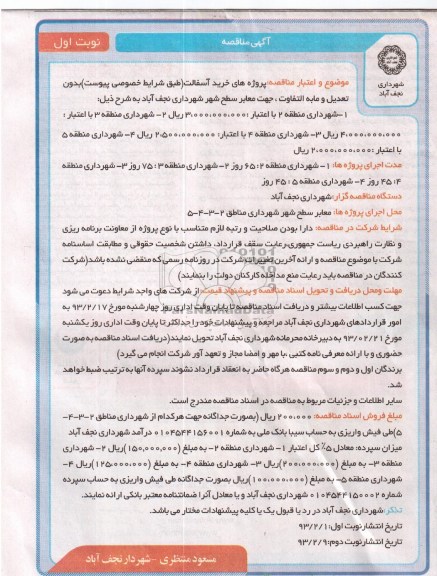 نوبت اول
آگهی مناقصه
شهرداری
نجف آباد
موضوع و اعتبار مناقصه:پروژه های خرید آسفالت(طبق شرایط خصوصی پیوست)بدون
تعدیل و مابه التفاوت ، جهت معابر سطح شهر شهرداری نجف آباد به شرح ذیل:
۱-شهرداری منطقه ۲ با اعتبار :۳,۰۰۰,۰۰۰,۰۰۰ ریال ۲- شهرداری منطقه ۳ با اعتبار :
۴,۰۰۰,۰۰۰,۰۰۰ ریال ۳- شهرداری منطقه ۴ با اعتبار: ۲,۵۰۰,۰۰۰,۰۰۰ ریال ۴- شهرداری منطقه ۵
با اعتبار :۲,۰۰۰,۰۰۰,۰۰۰ ریال
مدت اجرای پروژه ها: ۱- شهرداری منطقه ۲: ۶۵ روز ۲-شهرداری منطقه ۳: ۷۵ روز ۳-شهرداری منطقه
۴: ۴۵ روز ۴- شهرداری منطقه ۵: ۴۵ روز
دستگاه مناقصه گزار:شهرداری نجف آباد
محل اجرای پروژه ها: معابر سطح شهر شهرداری مناطق ۲-۳-۴-۵
شرایط شرکت در مناقصه: دارا بودن صلاحیت و رتبه لازم متناسب با نوع پروژه از معاونت برنامه ریزی
و نظارت راهبردی ریاست جمهوری،رعایت سقف قرارداد، داشتن شخصیت حقوقی و مطابقت اساسنامه
شرکت با موضوع مناقصه و ارائه آخرین تغییرات شرکت در روزنامه رسمی که منقضی نشده باشد(شرکت
کنندگان در مناقصه باید رعایت منع مداخله کارکنان دولت را بنمایند)
مهلت ومحل دریافت و تحویل اسناد مناقصه و پیشنهاد قیمت: از شرکت های واجد شرایط دعوت می شود
جهت کسب اطلاعات بیشتر و دریافت اسناد مناقصه تا پایان وقت اداری روز چهارشنبه مورخ ۹۳/۲/۱۷ به
امور قراردادهای شهرداری نجف آباد مراجعه و پیشنهادات خود را حداکثر تا پایان وقت اداری روز یکشنبه
مورخ ۹۳/۰۲/۲۱ به دبیرخانه محرمانه شهرداری نجف آباد تحویل نمایند(دریافت اسناد مناقصه به صورت
حضوری و با ارائه معرفی نامه کتبی ،با مهر و امضا مجاز و تعهد آور شرکت انجام می گیرد)
برندگان اول و دوم و سوم مناقصه هرگاه حاضر به انعقاد قرارداد نشوند سپرده آنها به ترتیب ضبط خواهد
شد.
سایر اطلاعات و جزئیات مربوط به مناقصه در اسناد مناقصه مندرج است.
مبلغ فروش اسناد مناقصه: ۲۰۰,۰۰۰ ریال (بصورت جداگانه جهت هرکدام از شهرداری مناطق ۲-۳-۴-
۵)طی فیش واریزی به حساب سیبا بانک ملی به شماره ۰۱۰۴۵۴۴۱۵۶۰۰۱ درآمد شهرداری نجف آباد
میزان سپرده: معادل ۵٪ کل اعتبار ۱- شهرداری منطقه ۲- به مبلغ (۱۵۰,۰۰۰,۰۰۰)ریال ۲- شهرداری
منطقه ۳- به مبلغ (۲۰۰,۰۰۰,۰۰۰)ریال ۳- شهرداری منطقه ۴- به مبلغ (۱۲۵,۰۰۰,۰۰۰)ریال ۴-
شهرداری منطقه ۵- به مبلغ (۱۰۰,۰۰۰,۰۰۰)ریال بصورت جداگانه طی فیش واریزی به حساب سپرده
شماره ۰۱۰۴۵۴۴۱۵۰۰۰۲ شهرداری نجف آباد و یا معادل آنرا ضمانتنامه معتبر بانکی ارائه نمایند.
تذکر:شهرداری نجف آباد در رد یا قبول یک یا کلیه پیشنهادات مختار می باشد.
تاریخ انتشار نوبت اول:۹۳/۲/۱
تاریخ انتشار نوبت دوم:۹۳/۲/۹
مسعود منتظری -شهردار نجف آباد